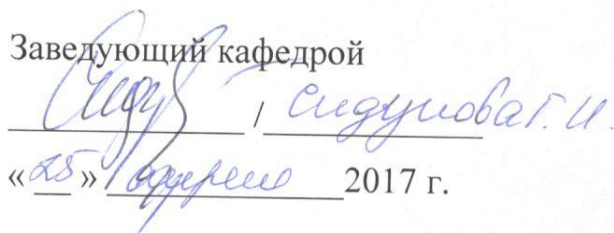 Заведующий кафедрой
/ Сидунова Г. И.
«25» апреля 2017 г.